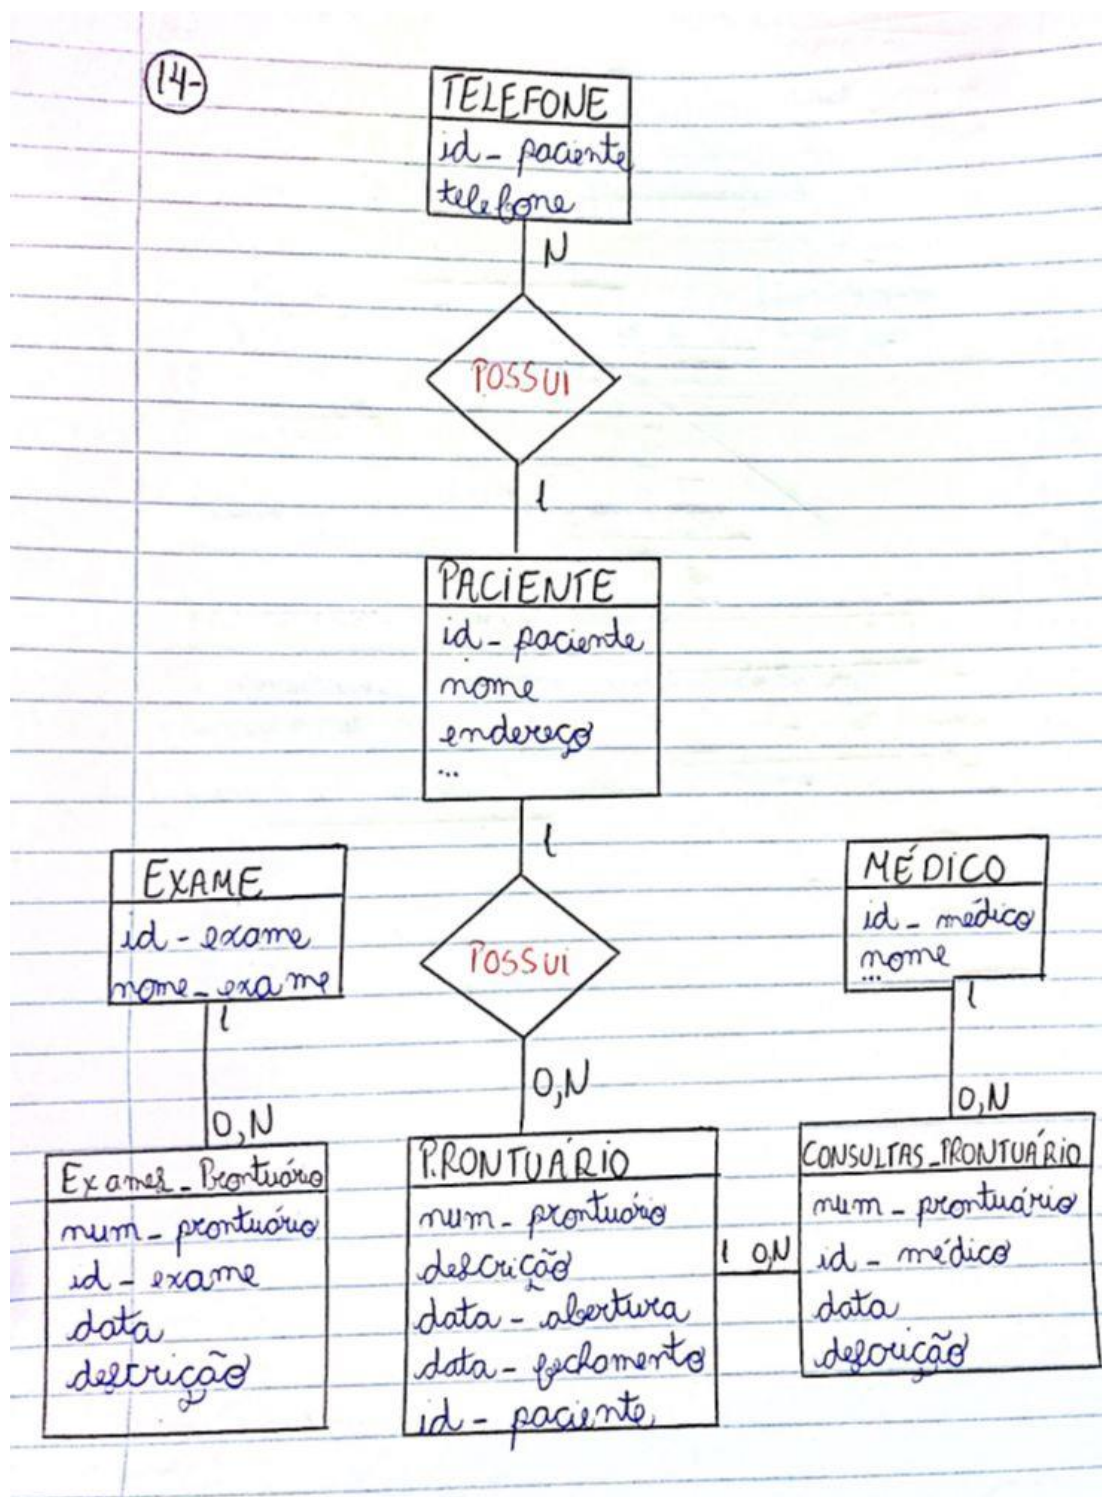 14-
TELEFONE
id_paciente
telefone
N
POSSUI
1
PACIENTE
id_paciente
nome
endereço
...
1
POSSUI
0,N
EXAME
id-exame
nome_exame
1
0,N
Exames_Prontuário
num_prontuário
id-exame
data
descrição
P.RONTUÁRIO
num_prontuário
descrição
data-abertura
data-fechamento
id-paciente
1 0,N
MÉDICO
id_médico
nome
...
1
0,N
CONSULTAS_PRONTUÁRIO
num_prontuário
id_médico
data
descrição